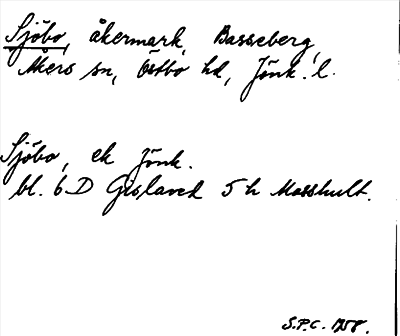 Sjöbo, åkermark, Basseberg,
Åkers sn, Östbo hd, Jönk. l.
Sjöbo, ek Jönk.
bl. 6 D Gislaved 5 h Mosshult.
S.P.C. 1958.